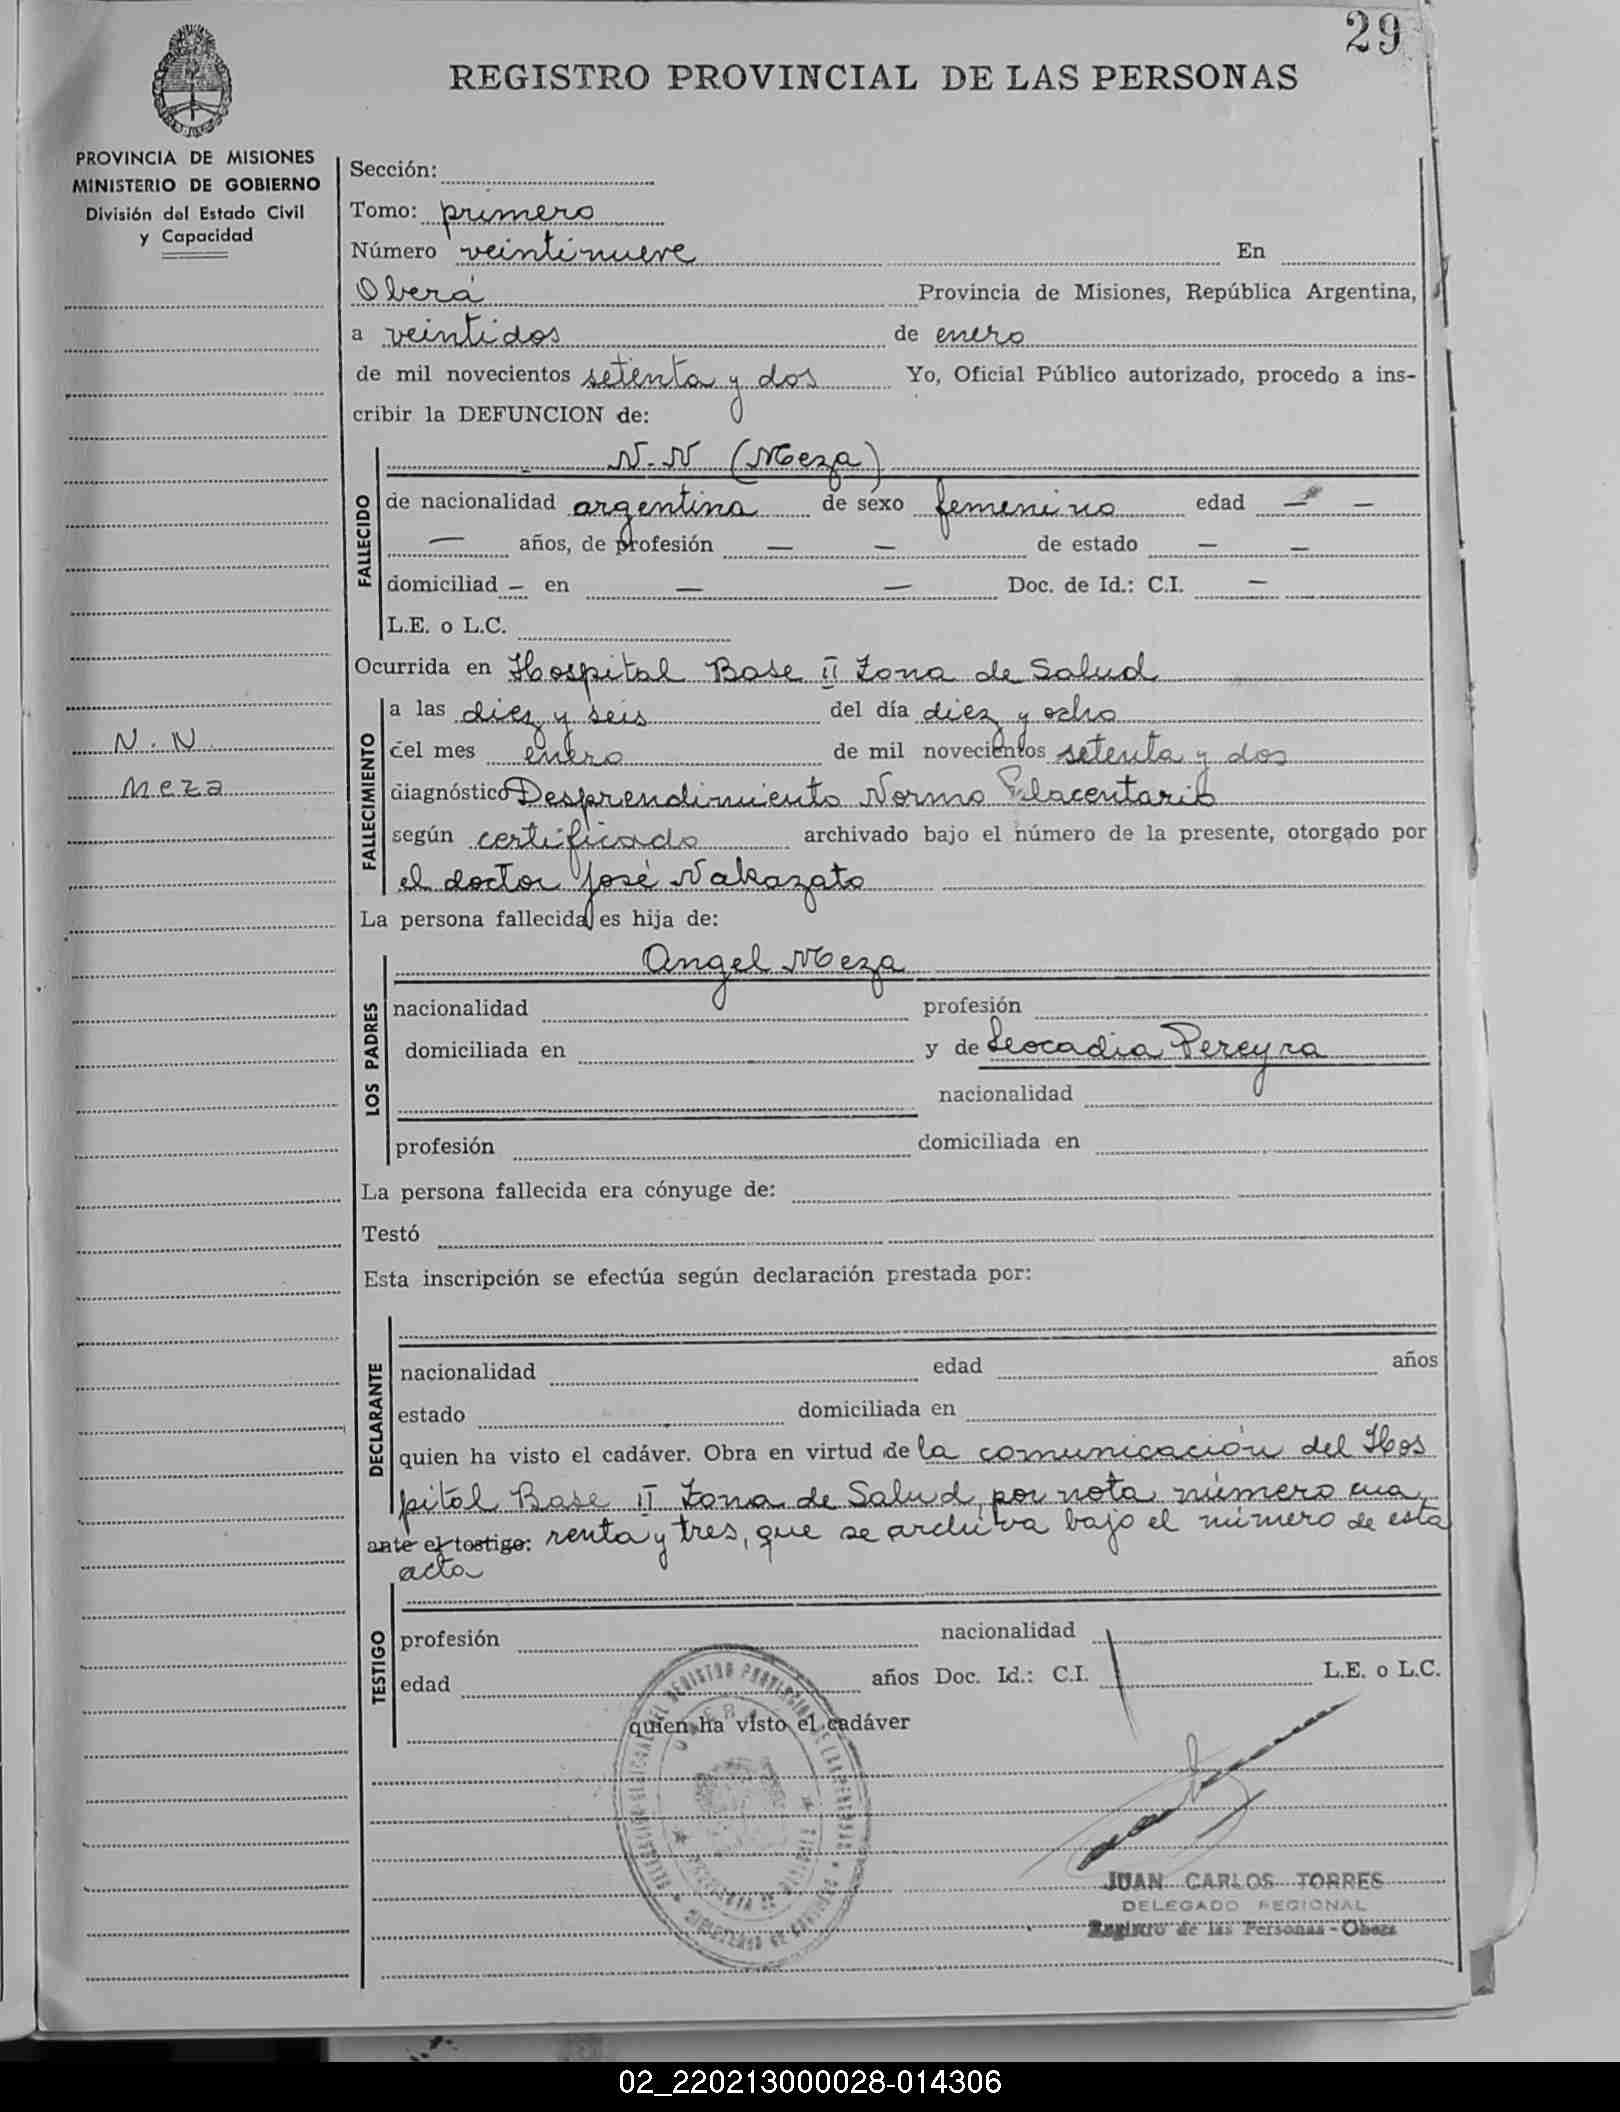 29
REGISTRO PROVINCIAL DE LAS PERSONAS
PROVINCIA DE MISIONES
MINISTERIO DE GOBIERNO
División del Estado Civil
y Capacidad
Sección:
Tomo: primero
Número veintinueve En
Oberá Provincia de Misiones, República Argentina,
a veintidos de enero
de mil novecientos setenta y dos Yo, Oficial Público autorizado, procedo a ins-
cribir la DEFUNCION de:
FALLECIDO
N.N (Meza)
de nacionalidad argentina de sexo femenino edad — —
— años, de profesión — — de estado — —
domiciliad — en — — Doc. de Id.: C.I. —
L.E. o L.C.
Ocurrida en Hospital Base II Zona de Salud
N.N.
Meza
FALLECIMIENTO
a las diez y seis del día diez y ocho
del mes enero de mil novecientos setenta y dos
diagnóstico Desprendimiento Normo Placentario
según certificado archivado bajo el número de la presente, otorgado por
el doctor José Nakazato
La persona fallecida es hija de:
LOS PADRES
Angel Meza
nacionalidad profesión
domiciliada en y de Leocadia Pereyra
nacionalidad
profesión domiciliada en
La persona fallecida era cónyuge de:
Testó
Esta inscripción se efectúa según declaración prestada por:
DECLARANTE
nacionalidad edad años
estado domiciliada en
quien ha visto el cadáver. Obra en virtud de la comunicación del Hos
pital Base II Zona de Salud por nota número cua
ante el testigo: renta y tres, que se archiva bajo el número de esta
acta
TESTIGO
profesión nacionalidad
edad años Doc. Id.: C.I. L.E. o L.C.
quien ha visto el cadáver
JUAN CARLOS TORRES
DELEGADO REGIONAL
Registro de las Personas - Obera
02_220213000028-014306